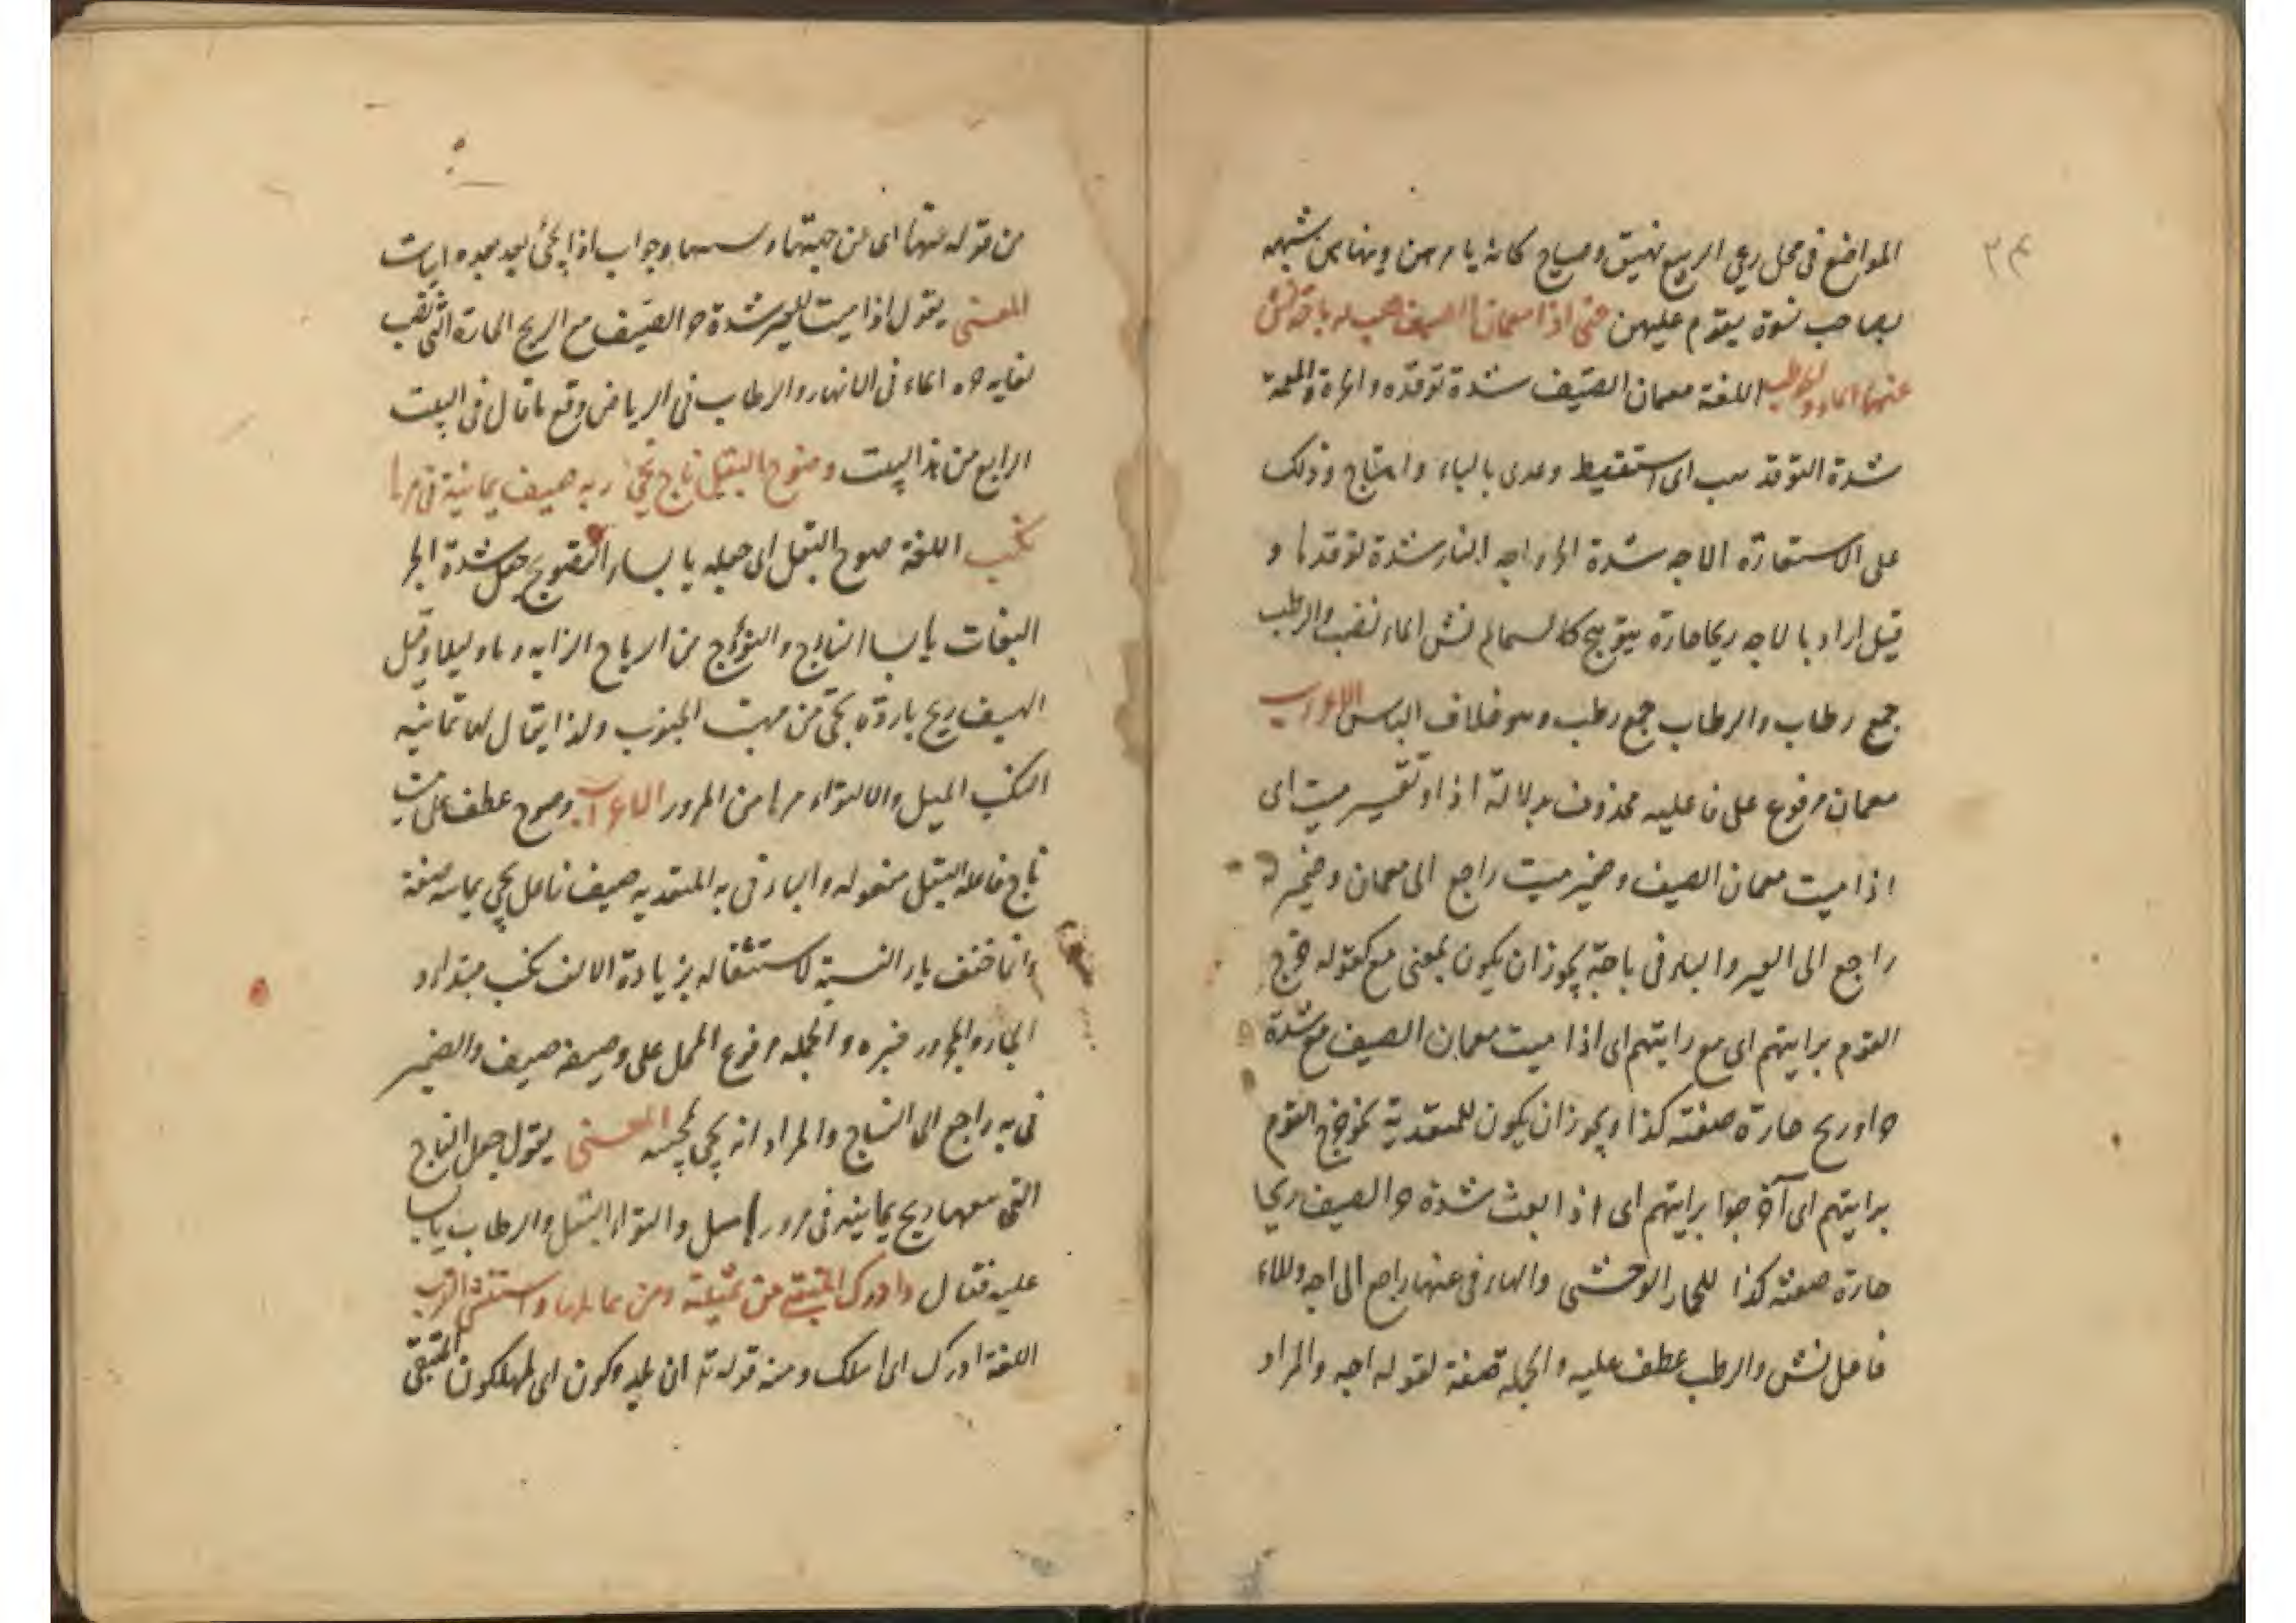 ٢٤
المواضع فى محل رعى الربيع نهيق وصياح كانه يامرهن وينهاهن شبهه
بصاحب نسوة يقوم عليهن حتى اذا معمعان الصيف هب له باجة نش
عنها الماء والرطب اللغة معمعان الصيف شدة توقده والحرة والمعمعة
شدة التوقد هب اى استيقظ وعدى بالباء واهتاج وذلك
على الاستعارة الاجه شدة الحر واجه النار شدة توقدها و
قيل اراد بالاجه ريحا حارة يتوهج كالسمائم نش الماء نضب والرطب
جمع رطاب والرطاب جمع رطب وهو خلاف اليابس الاعراب
معمعان مرفوع على فاعليه محذوف بدلالة اذا وتفسير هبت اى
اذا هبت معمعان الصيف وضمير هبت راجع الى معمعان وضمير له
راجع الى العير والباء فى باجة يجوز ان يكون بمعنى مع كقوله خرج
القوم برايتهم اى مع رايتهم اى اذا هبت معمعان الصيف مع شدة
حر او ريح حارة صفته كذا ويجوز ان يكون للتعدية نحو خرج القوم
برايتهم اى اخرجوا رايتهم اى اذا بعث شدة حر الصيف ريحا
حارة صفته كذا للحمار الوحشى والهاء فى عنها راجع الى اجه والماء
فاعل نش والرطب عطف عليه والجملة صفة لقوله اجه والمراد
من قوله عنها اى من جهتها وسببها وجواب اذا يجئ بعد بعده ابيات
المعنى يقول اذا هبت للعير شدة حر الصيف مع الريح الحارة التى نضب
لغاية حره الماء فى الانهار والرطاب فى الرياض وقع ما قال فى البيت
الرابع من هذا البيت وصوح البقل نآج تجئ به هيف يمانية فى مرها
نكب اللغة صوح البقل اى جعله يابسا والتصويح جعل شدة الحر
النبات يابسا النآج والنؤج من الرياح الرابه وماء ليلا وقيل
الهيف ريح باردة تجئ من مهب الجنوب ولذا يقال لها يمانيه
النكب الميل والالتواء مرها من المرور الاعراب وصوح عطف على هبت
نآج فاعله البقل مفعوله والباء فى به للتعديه هيف فاعل تجئ يمانيه صفة
وانما خفف ياء النسبة لاستثقاله بزيادة الالف نكب مبتداء و
الجار والمجرور خبره والجمله مرفوع المحل على وصيفة هيف والضمير
فى به راجع الى النآج والمراد انه يجئ بجنسه المعنى يقول جعل النآج
التى معها ريح يمانيه فى مرورها ميل والتواء البقل والرطاب يابسا
عليه فقال وادرك المتبقى من ثميلته ومن ثمائلها واستنشئ الغرب
اللغة ادرك اى اهلك ومنه قوله تع انا لمدركون اى لمهلكون المتبقى